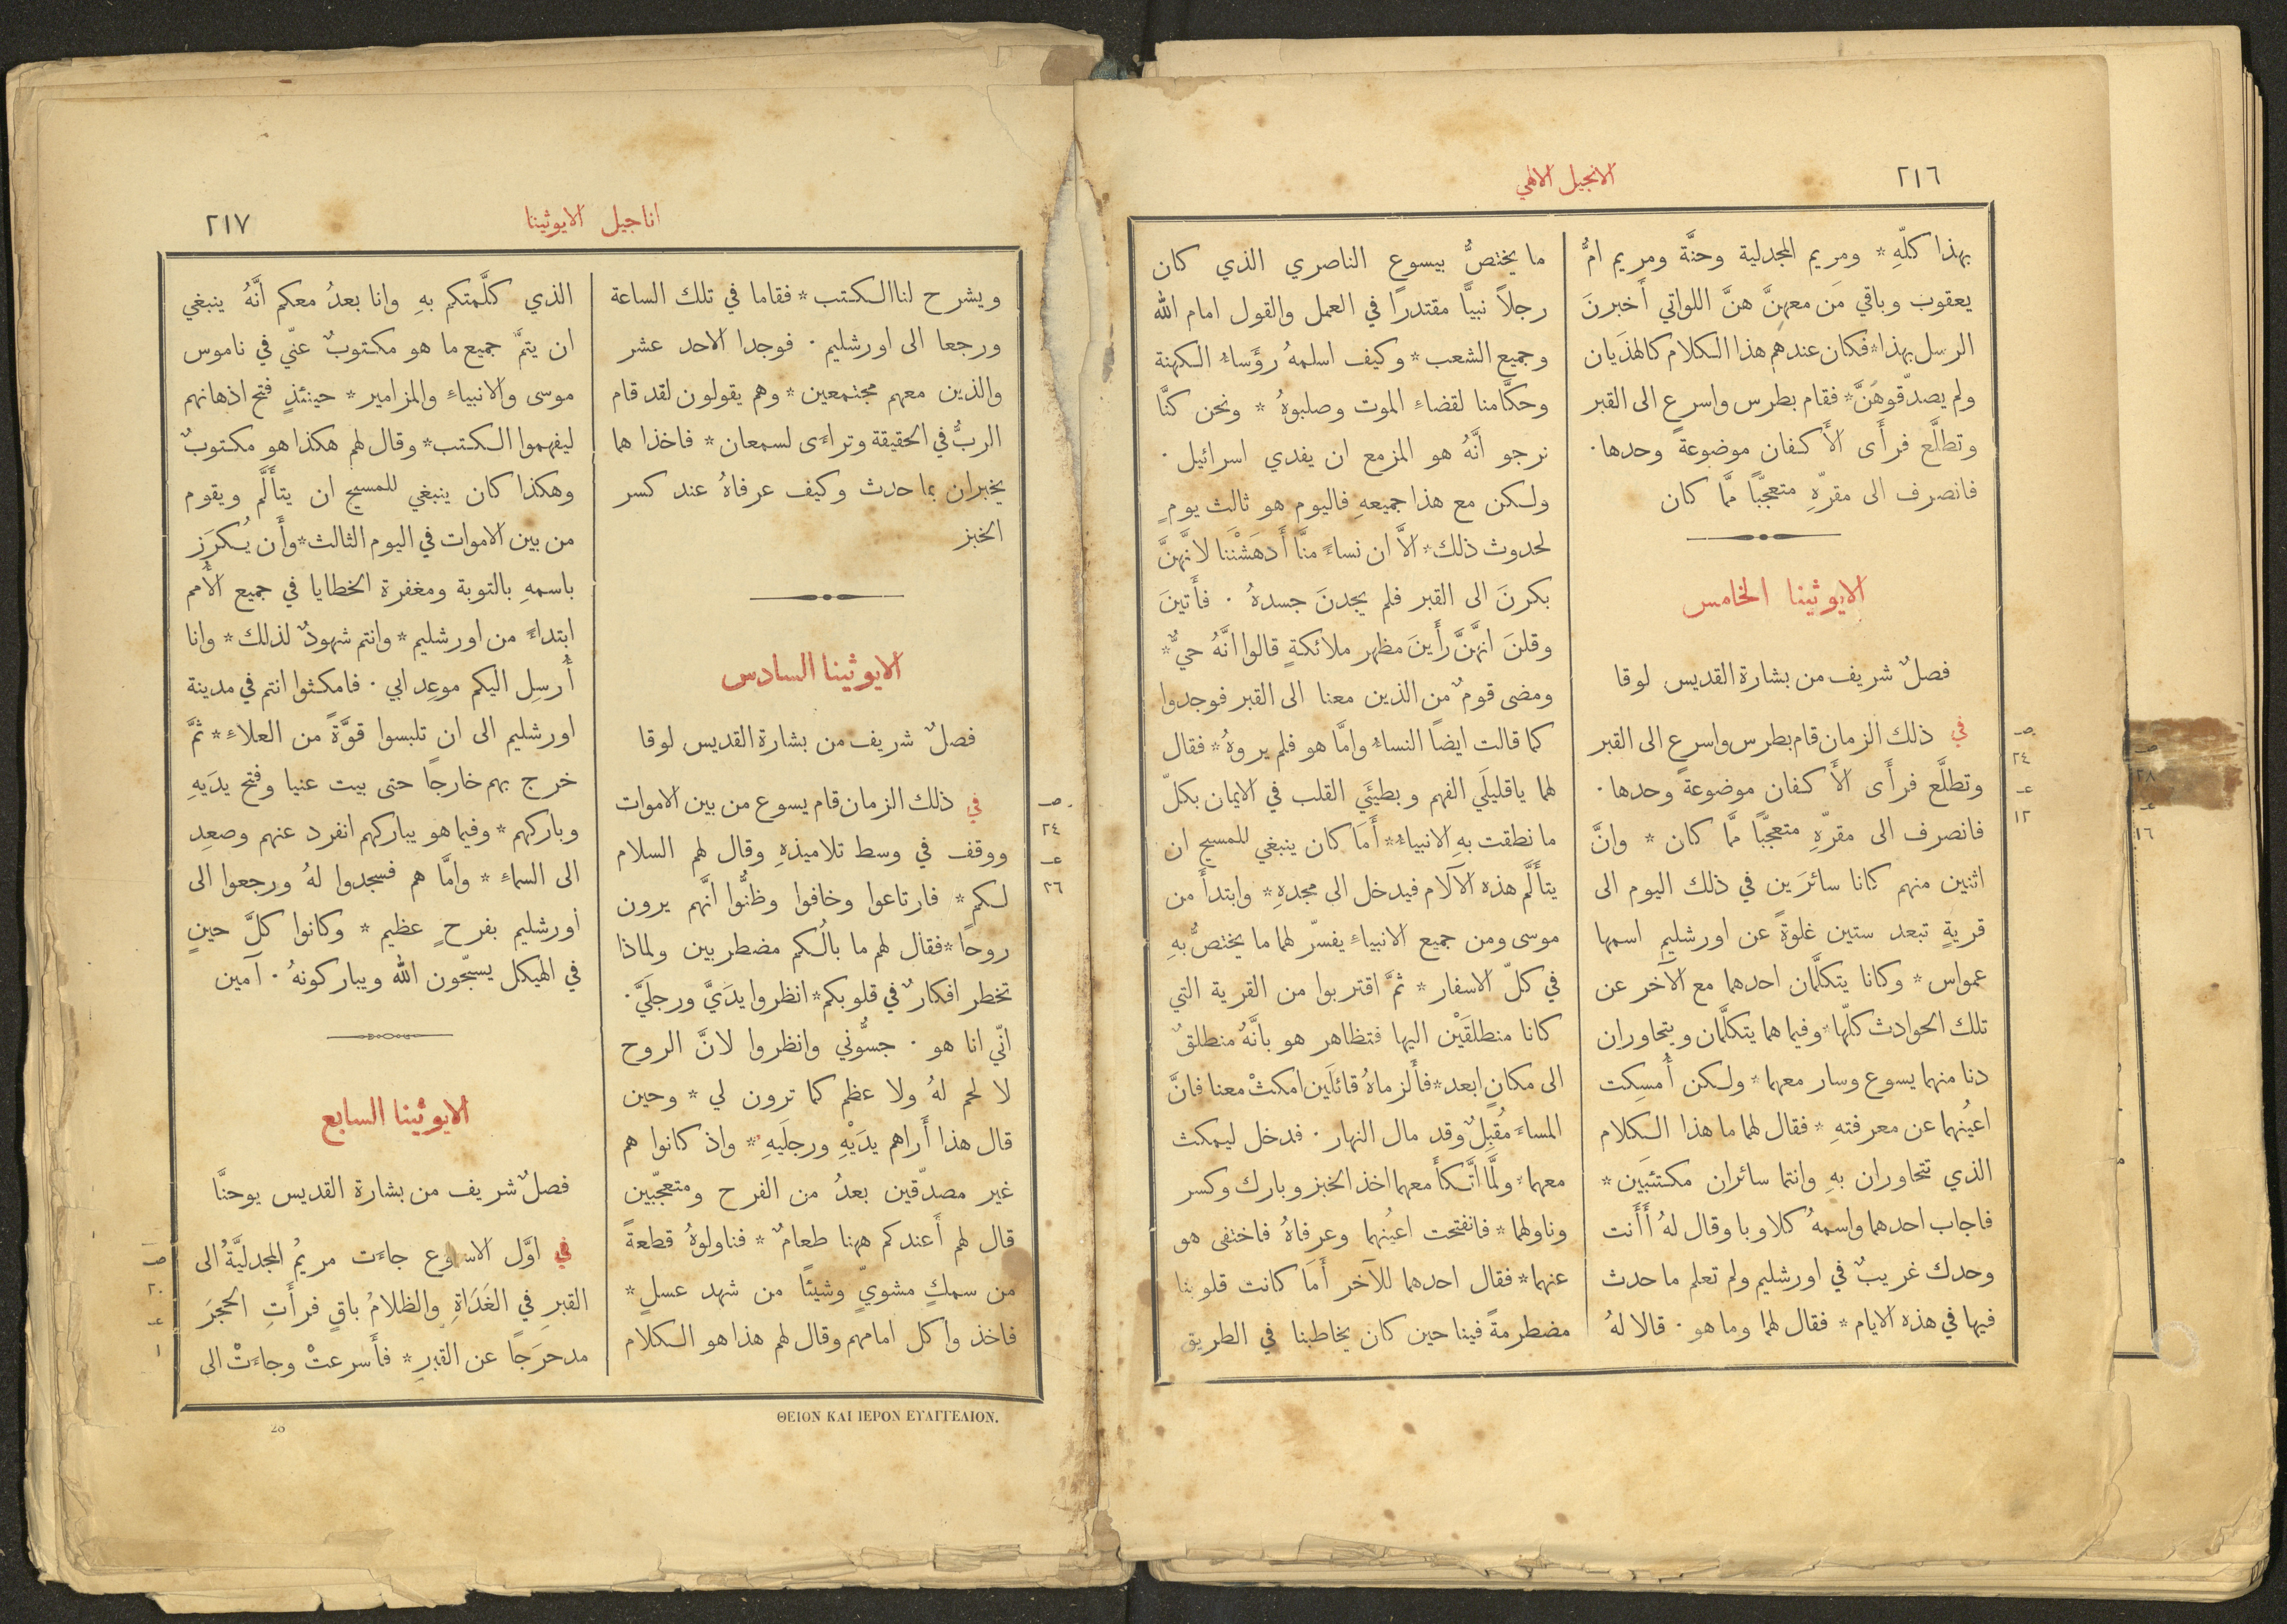 ٢١٦
الانجيل الالهي
بهذا كلّهِ * ومريم المجدلية وحنَّة ومريم امُّ
يعقوب وباقي مَن معهنَّ هنَّ اللواتي أَخبرنَ
الرسل بهذا * فكان عندهم هذا الكلام كالهذَيان
ولم يصدّقوهَنَّ * فقام بطرس واسرع الى القبر
وتطلَّع فرأَى الأَكفان موضوعةً وحدها ·
فانصرف الى مقرّهِ متعجبًّا ممَّا كان
الايوثينا الخامس
فصلٌ شريف من بشارة القديس لوقا
في ذلك الزمان قام بطرس واسرع الى القبر
وتطلَّع فرأَى الأَكفان موضوعةً وحدها ·
فانصرف الى مقرّهِ متعجبًّا ممَّا كان * وانَّ
اثنين منهم كانا سائرَين في ذلك اليوم الى
قريةٍ تبعد ستين غلوةً عن اورشليم اسمها
عمواس * وكانا يتكلَّمان احدهما مع الآخر عن
تلك الحوادث كلّها * وفيما هما يتكلَّمان ويتحاوران
دنا منهما يسوع وسار معهما * ولكن أُمسِكت
اعيُنهما عن معرفتهِ * فقال لهما ما هذا الكلام
الذي تتحاوران بهِ وانتما سائران مكتئبَين *
فاجاب احدهما واسمهُ كلاوبا وقال لهُ أَأَنت
وحدك غريبٌ في اورشليم ولم تعلم ما حدث
فيها في هذه الايام * فقال لهما وما هو · قالا لهُ
صـ
٢٤
عـ
١٢
ما يختصُّ بيسوع الناصري الذي كان
رجلاً نبيًّا مقتدرًا في العمل والقول امام الله
وجميع الشعب * وكيف اسلمهُ رؤَساءُ الكهنة
وحكَّامنا لقضاءِ الموت وصلبوهُ * ونحن كنَّا
نرجو انَّهُ هو المزمع ان يفدي اسرائيل ·
ولكن مع هذا جميعهِ فاليوم هو ثالث يومٍ
لحدوث ذلك * الاَّ ان نساءً منَّا أَدهَشْنَنا لانَّهنَّ
بكرنَ الى القبر فلم يجدنَ جسدهُ · فأَتينَ
وقلنَ انهَّنَّ رأَينَ مظهر ملائكةٍ قالوا انَّهُ حيٌّ *
ومضى قومٌ من الذين معنا الى القبر فوجدوا
كما قالت ايضًا النساءُ وامَّا هو فلم يروهُ * فقال
لهما يا قليلَي الفهم وبطيئَي القلب في الايمان بكلّ
ما نطقت بهِ الانبياءُ * أَمَا كان ينبغي للمسيح ان
يتأَلَّم هذه الآلام فيدخل الى مجدهِ * وابتدأَ من
موسى ومن جميع الانبياءِ يفسّر لهما ما يختصُّ بهِ
في كلّ الاسفار * ثمَّ اقتربوا من القرية التي
كانا منطلقَيْن اليها فتظاهر هو بانَّهُ منطلقٌ
الى مكانٍ ابعد * فأَلزماهُ قائلَين امكثْ معنا فانَّ
المساءَ مُقبِلٌ وقد مال النهار · فدخل ليمكث
معهما * ولمَّا اتَّكأَ معهما اخذ الخبز وبارك وكسر
وناولهما * فانفتحت اعيُنهما وعرفاهُ فاختفى هو
عنهما * فقال احدهما للآخر أَمَا كانت قلوبنا
مضطرمةً فينا حين كان يخاطبنا في الطريق
صـ
٢٨
عـ
١٦
اناجيل الايوثينا
٢١٧
ويشرح لنا الكتب * فقاما في تلك الساعة
ورجعا الى اورشليم · فوجدا الاحد عشر
والذين معهم مجتمعين * وهم يقولون لقد قام
الربُّ في الحقيقة وتراءَى لسمعان * فاخذا هما
يخبران بما حدث وكيف عرفاهُ عند كسر
الخبز
الايوثينا السادس
فصلٌ شريف من بشارة القديس لوقا
في ذلك الزمان قام يسوع من بين الاموات
ووقف في وسط تلاميذهِ وقال لهم السلام
لكم * فارتاعوا وخافوا وظنُّوا انَّهم يرون
روحًا * فقال لهم ما بالُكم مضطربين ولماذا
تخطر افكارٌ في قلوبكم * انظروا يدَيَّ ورجلَيَّ ·
انّي انا هو · جسُّوني وانظروا لانَّ الروح
لا لحم لهُ ولا عظم كما ترون لي * وحين
قال هذا أَراهم يدَيْهِ ورجلَيهِ * واذ كانوا هم
غير مصدّقين بعدُ من الفرح ومتعجّبين
قال لهم أَعندكم ههنا طعامٌ * فناولوهُ قطعةً
من سمكٍ مشويّ وشيئًا من شهد عسلٍ *
فاخذ واكل امامهم وقال لهم هذا هو الكلام
صـ
٢٤
عـ
٢٦
الذي كلَّمتكم بهِ وانا بعدُ معكم أنَّهُ ينبغي
ان يتمَّ جميع ما هو مكتوبٌ عنّي في ناموس
موسى والانبياءِ والمزامير * حينئذٍ فتح اذهانهم
ليفهموا الكتب * وقال لهم هكذا هو مكتوبٌ
وهكذا كان ينبغي للمسيح ان يتأَلَّم ويقوم
من بين الاموات في اليوم الثالث * وأَن يُكرَز
باسمهِ بالتوبة ومغفرة الخطايا في جميع الأُمم
ابتداءً من اورشليم * وانتم شهودٌ لذلك * وانا
أُرسِل اليكم موعِد ابي · فامكثوا انتم في مدينة
اورشليم الى ان تلبسوا قوَّةً من العلاءِ * ثمَّ
خرج بهم خارجًا حتى بيت عنيا وفتح يدَيهِ
وباركهم * وفيما هو يباركهم انفرد عنهم وصعِد
الى السماءِ * وامَّا هم فسجدوا لهُ ورجعوا الى
أورشليم بفرحٍ عظيم * وكانوا كلَّ حينٍ
في الهيكل يسبّحون الله ويباركونهُ · آمين
الايوثينا السابع
فصلٌ شريف من بشارة القديس يوحنَّا
في اوَّل الاسبوع جاءَت مريمُ المجدليَّةُ الى
القبرِ في الغَدَاةِ والظلامُ باقٍ فرأَتِ الحجرَ
مدحرَجًا عن القبرِ * فأَسرعتْ وجاءَتْ الى
صـ
٢٠
عـ
١
ΘΕΙΟΝ ΚΑΙ ΙΕΡΟΝ ΕΥΑΓΓΕΛΙΟΝ.